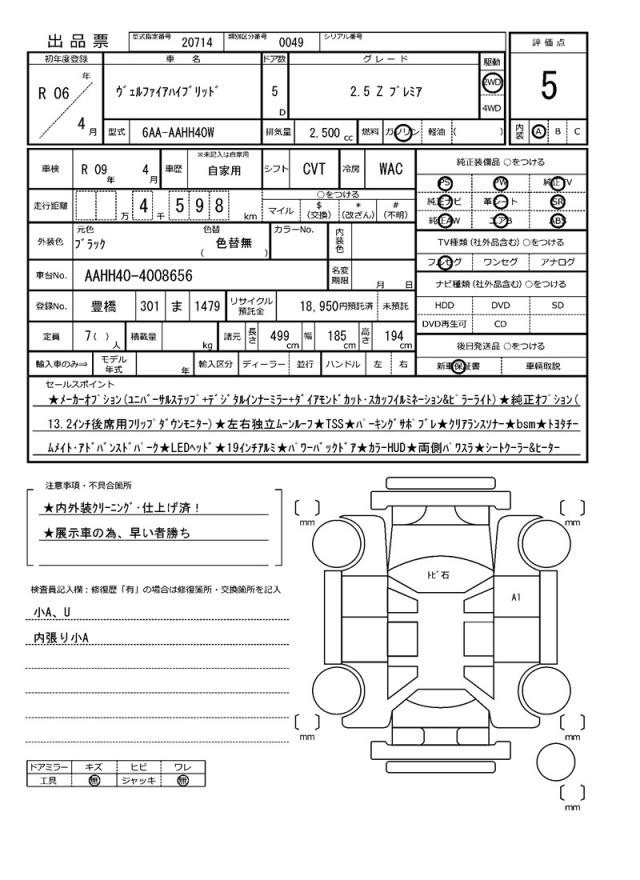 出品票 型式指定番号 20714 類別区分番号 0049 シリアル番号
初年度登録 車名 ドア数 グレード 駆動 評価点
R 06 年 4 月 ヴェルファイアハイブリッド 5 D 2.5 Z プレミア 2WD 4WD 5
型式 6AA-AAHH40W 排気量 2,500 cc 燃料 ガソリン 軽油 ( ) 内装 A B C
車検 R 09 年 4 月 車歴 ※未記入は自家用 自家用 シフト CVT 冷房 WAC
純正装備品 ○をつける
PS PW 純正TV
純正ナビ 革シート SR
純正AW エアB ABS
走行距離 万 4 千 5 9 8 km ○をつける マイル $ (交換) * (改ざん) # (不明)
外装色 元色 ブラック 色替 ( 色替無 ) カラーNo. 内装色
TV種類 (社外品含む) ○をつける
フルセグ ワンセグ アナログ
車台No. AAHH40-4008656 名変期限 月 日
ナビ種類 (社外品含む) ○をつける
HDD DVD SD
DVD再生可 CD
登録No. 豊橋 301 ま 1479 リサイクル預託金 18,950円預託済 未預託
定員 7( ) 人 積載量 kg 諸元 長さ 499 cm 幅 185 cm 高さ 194 cm
後日発送品 ○をつける
新車保証書 車輌取説
輸入車のみ⇨ モデル年式 年 輸入区分 ディーラー 並行 ハンドル 左 右
セールスポイント
★メーカーオプション(ユニバーサルステップ+デジタルインナーミラー+ダイアモンドカット・スカッフイルミネーション&ピラーライト)★純正オプション(
13.2インチ後席用フリップダウンモニター)★左右独立ムーンルーフ★TSS★パーキングサポブレ★クリアランスソナー★bsm★トヨタチー
ムメイト・アドバンスドパーク★LEDヘッド★19インチアルミ★パワーバックドア★カラーHUD★両側パワスラ★シートクーラー&ヒーター
注意事項・不具合箇所
★内外装クリーニング・仕上げ済!
★展示車の為、早い者勝ち
検査員記入欄:修復歴「有」の場合は修復箇所・交換箇所を記入
小A、U
内張り小A
ドアミラー キズ ヒビ ワレ
工具 無 ジャッキ 無
[ ] mm
[ ] mm
トビ石
A1
[ ] mm
[ ] mm
[ ] mm